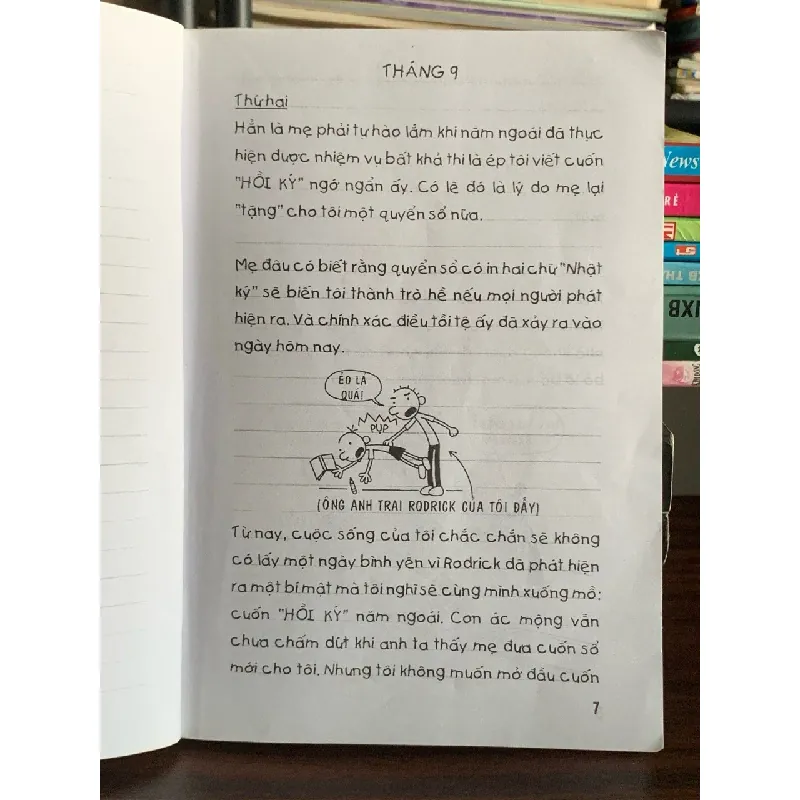 THÁNG 9
Thứ hai
Hẳn là mẹ phải tự hào lắm khi năm ngoái đã thực
hiện được nhiệm vụ bất khả thi là ép tôi viết cuốn
"HỒI KÝ" ngớ ngẩn ấy. Có lẽ đó là lý do mẹ lại
"tặng" cho tôi một quyển sổ nữa.
Mẹ đâu có biết rằng quyển sổ có in hai chữ "Nhật
ký" sẽ biến tôi thành trò hề nếu mọi người phát
hiện ra. Và chính xác điều tồi tệ ấy đã xảy ra vào
ngày hôm nay.
ẺO LẢ
QUÁ!
PỤP
(ÔNG ANH TRAI RODRICK CỦA TÔI ĐẤY)
Từ nay, cuộc sống của tôi chắc chắn sẽ không
có lấy một ngày bình yên vì Rodrick đã phát hiện
ra một bí mật mà tôi nghĩ sẽ cùng mình xuống mồ:
cuốn "HỒI KÝ" năm ngoái. Cơn ác mộng vẫn
chưa chấm dứt khi anh ta thấy mẹ đưa cuốn sổ
mới cho tôi. Nhưng tôi không muốn mở đầu cuốn
7
News
RẺ
LG
NXB